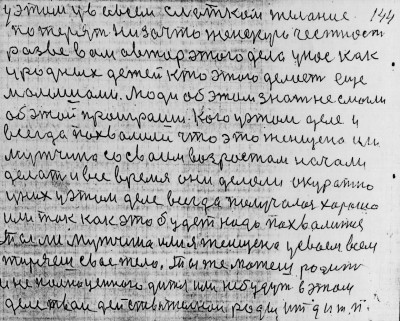 у этом ув всем сладком желание 144
потерят низачто женскую честност
разве вам автор этого дела у нос как
уродних детей кто этого делает еще
малышами. Люди об этом знат не смогли
об этой програми. Кого у этом деле и
всегда похвалили что это женщена или
мужчина со своим возростом начали
делат и все время они делали окуратно
у них у этом деле всегда получалос хорошо
или так как это будет надо похвалитса
Тоесли мужчина или я женщена у своем всем
теряем свое тело. Ты же можеш родит
и не полноценного дитя или небудут в этом
деле твои действ родит и т.д и т.п.